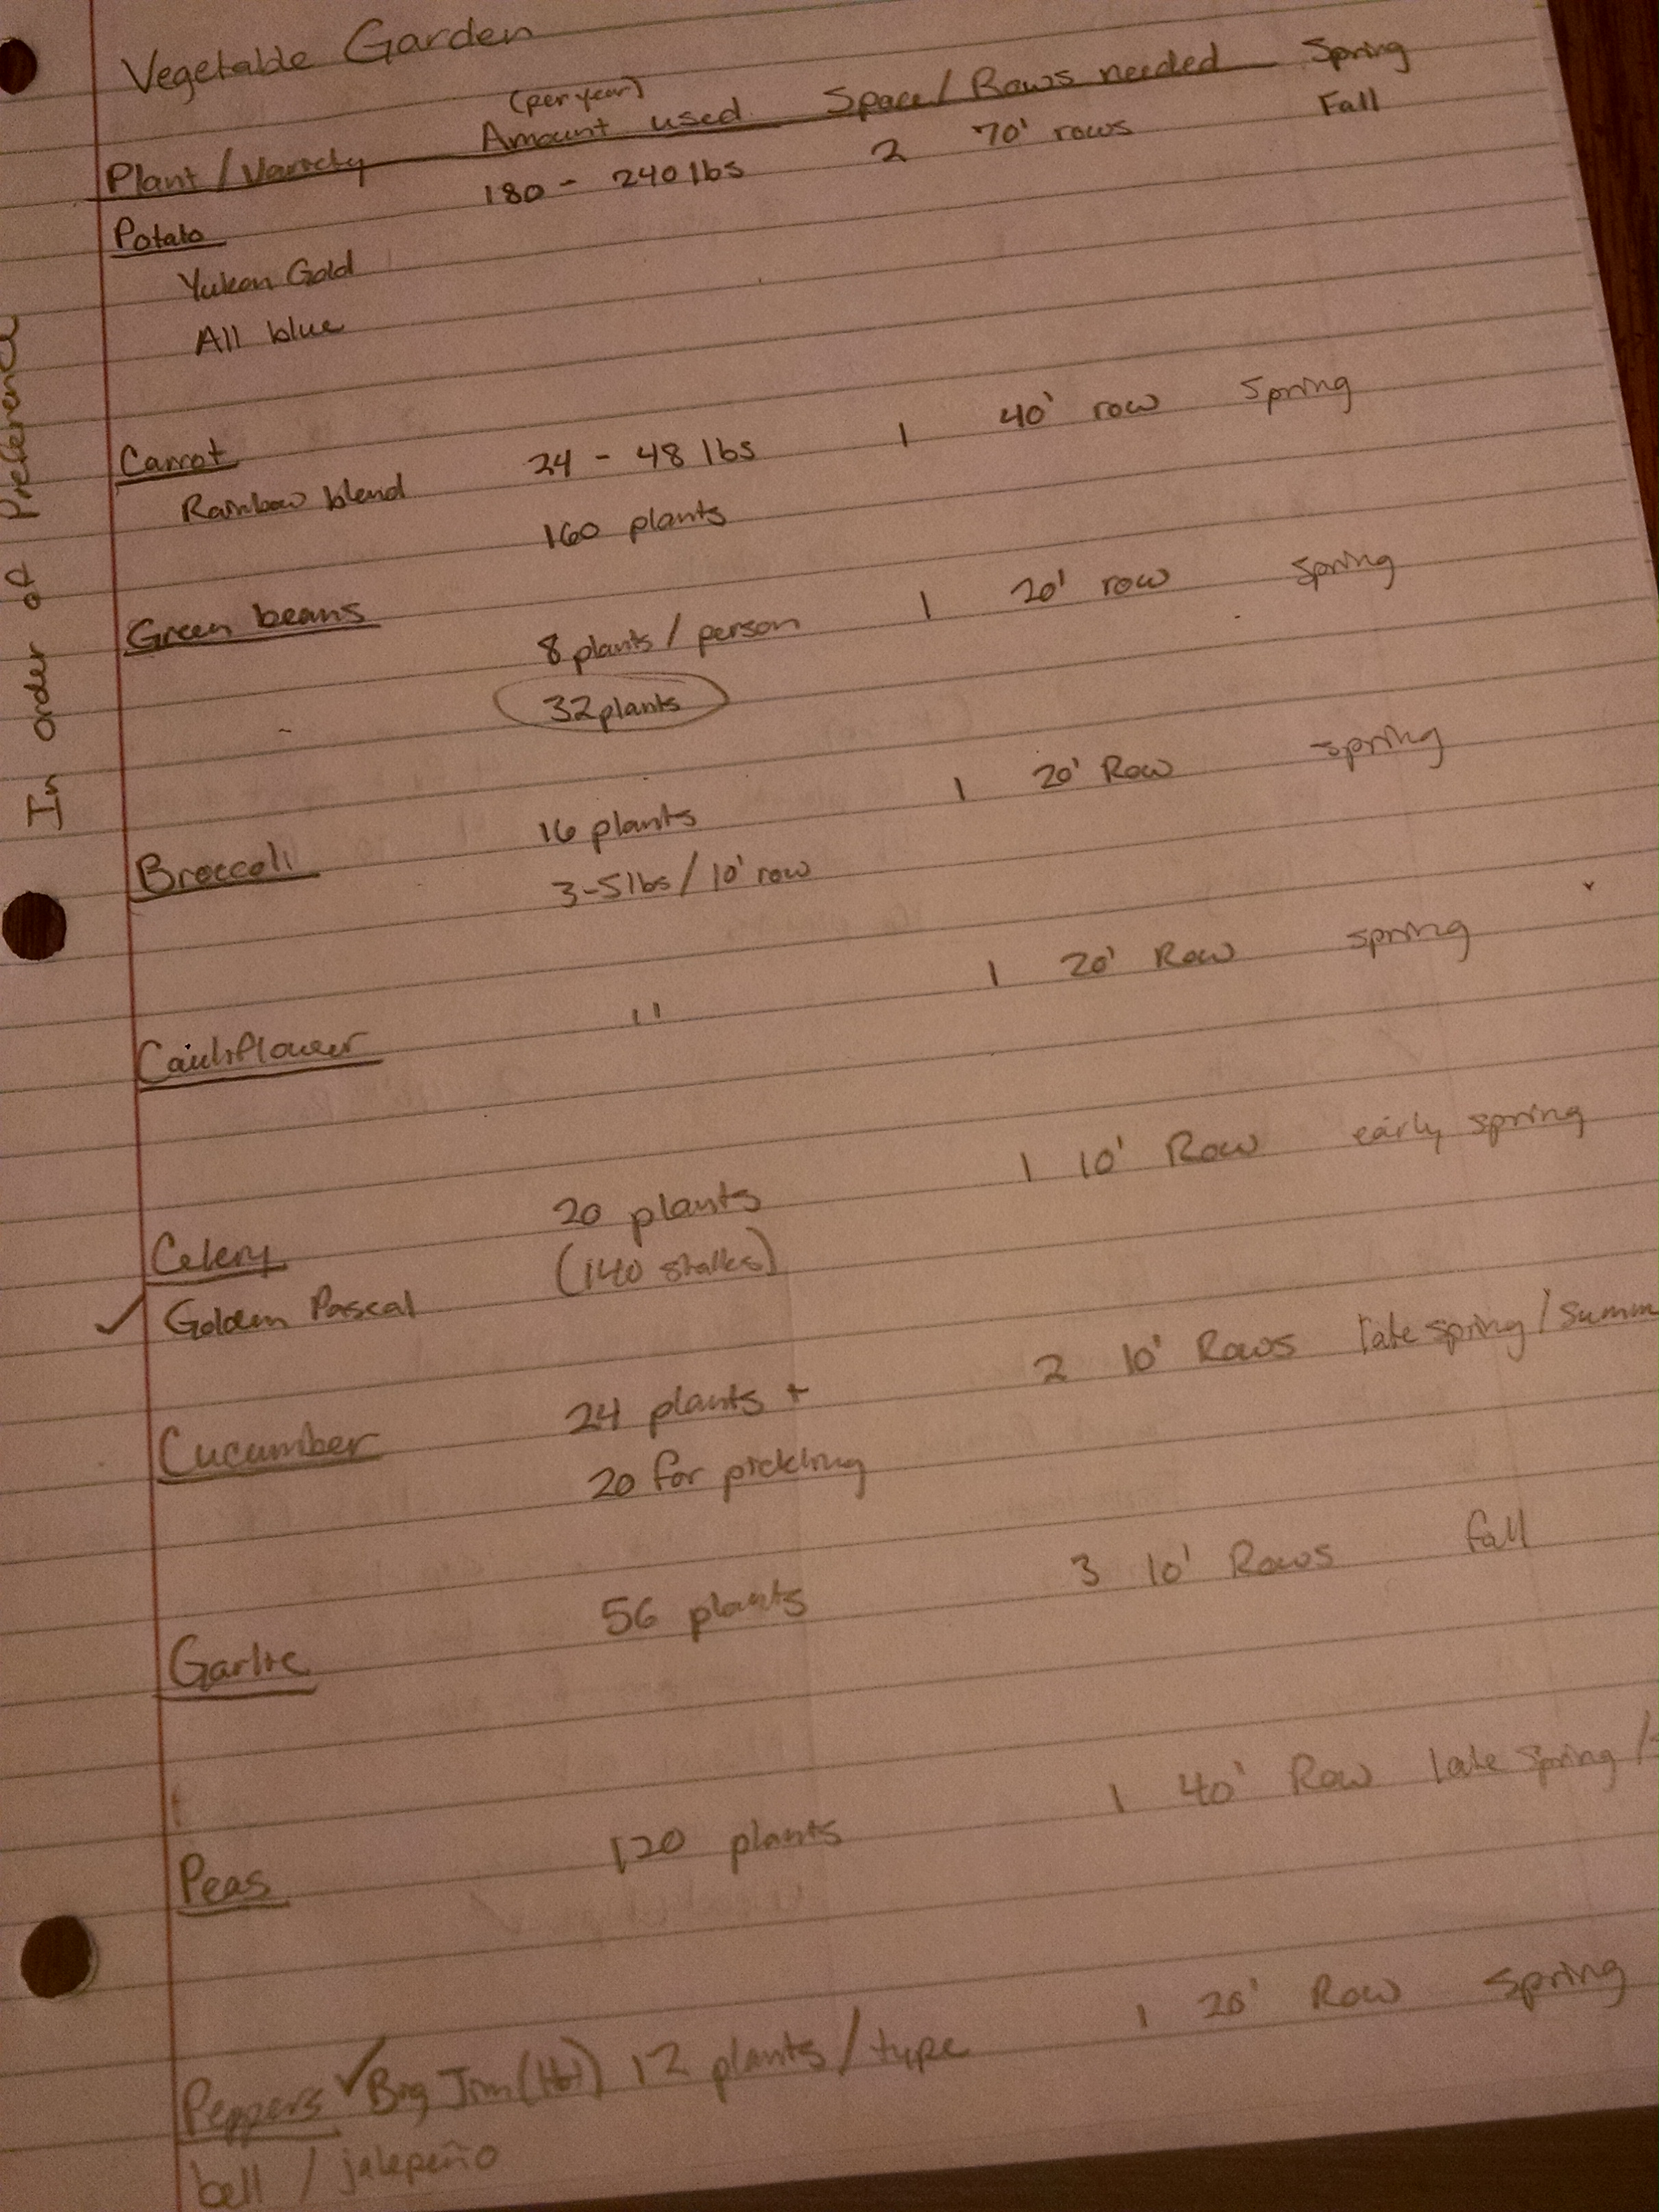 Vegetable Garden
Plant / Variety (per year) Amount used Space / Rows needed Spring
Potato 180 - 240 lbs 2 70' rows Fall
Yukon Gold
All blue
Carrot 24 - 48 lbs 1 40' row Spring
Rainbow blend 160 plants
Green beans 8 plants / person 1 20' row Spring
32 plants
Broccoli 16 plants 1 20' Row spring
3-5 lbs / 10' row
Cauliflower " 1 20' Row spring
Celery 20 plants 1 10' Row early spring
✓ Golden Pascal (140 stalks)
Cucumber 24 plants + 2 10' Rows late spring / Summ
20 for pickling
Garlic 56 plants 3 10' Rows fall
Peas 120 plants 1 40' Row late spring /
Peppers ✓ Big Jim 12 plants / type 1 20' Row Spring
bell / jalepeño
In order of Preference